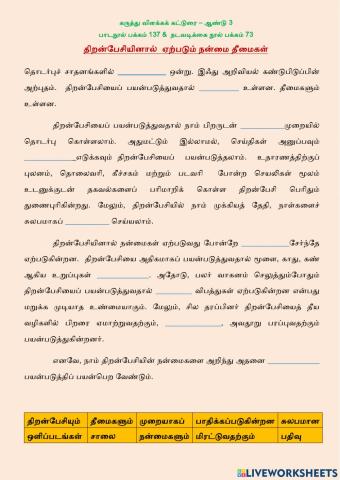 கருத்து விளக்கக் கட்டுரை – ஆண்டு 3
பாடநூல் பக்கம் 137 & நடவடிக்கை நூல் பக்கம் 73
திறன்பேசியினால் ஏற்படும் நன்மை தீமைகள்
தொடர்புச் சாதனங்களில் ____________ ஒன்று. இஃது அறிவியல் கண்டுபிடுப்பின்
அற்புதம். திறன்பேசியைப் பயன்படுத்துவதால் __________ உள்ளன. தீமைகளும்
உள்ளன.
திறன்பேசியைப் பயன்படுத்துவதால் நாம் பிறருடன் ___________முறையில்
தொடர்பு கொள்ளலாம். அதுமட்டும் இல்லாமல், செய்திகள் அனுப்பவும்
____________எடுக்கவும் திறன்பேசியைப் பயன்படுத்தலாம். உதாரணத்திற்குப்
புலனம், தொலைவரி, கீச்சகம் மற்றும் படவரி போன்ற செயலிகள் மூலம்
உடனுக்குடன் தகவல்களைப் பரிமாறிக் கொள்ள திறன்பேசி பெரிதும்
துணைபுரிகின்றது. மேலும், திறன்பேசியில் நாம் முக்கியத் தேதி, நாள்களைச்
சுலபமாகப் ___________ செய்யலாம்.
திறன்பேசியினால் நன்மைகள் ஏற்படுவது போன்றே ____________சேர்ந்தே
ஏற்படுகின்றன. திறன்பேசியை அதிகமாகப் பயன்படுத்துவதால் மூளை, காது, கண்
ஆகிய உறுப்புகள் _____________. அதோடு, பலர் வாகனம் செலுத்தும்போதும்
திறன்பேசியைப் பயன்படுத்துவதால் _________ விபத்துகள் ஏற்படுகின்றன என்பது
மறுக்க முடியாத உண்மையாகும். மேலும், சில தரப்பினர் திறன்பேசியைத் தீய
வழிகளில் பிறரை ஏமாற்றுவதற்கும், ______________, அவதூறு பரப்புவதற்கும்
பயன்படுத்துகின்றனர்.
எனவே, நாம் திறன்பேசியின் நன்மைகளை அறிந்து அதனை _____________
பயன்படுத்திப் பயன்பெற வேண்டும்.
திறன்பேசியும் தீமைகளும் முறையாகப் பாதிக்கப்படுகின்றன சுலபமான
ஒளிப்படங்கள் சாலை நன்மைகளும் மிரட்டுவதற்கும் பதிவு
LIVEWORKSHEETS